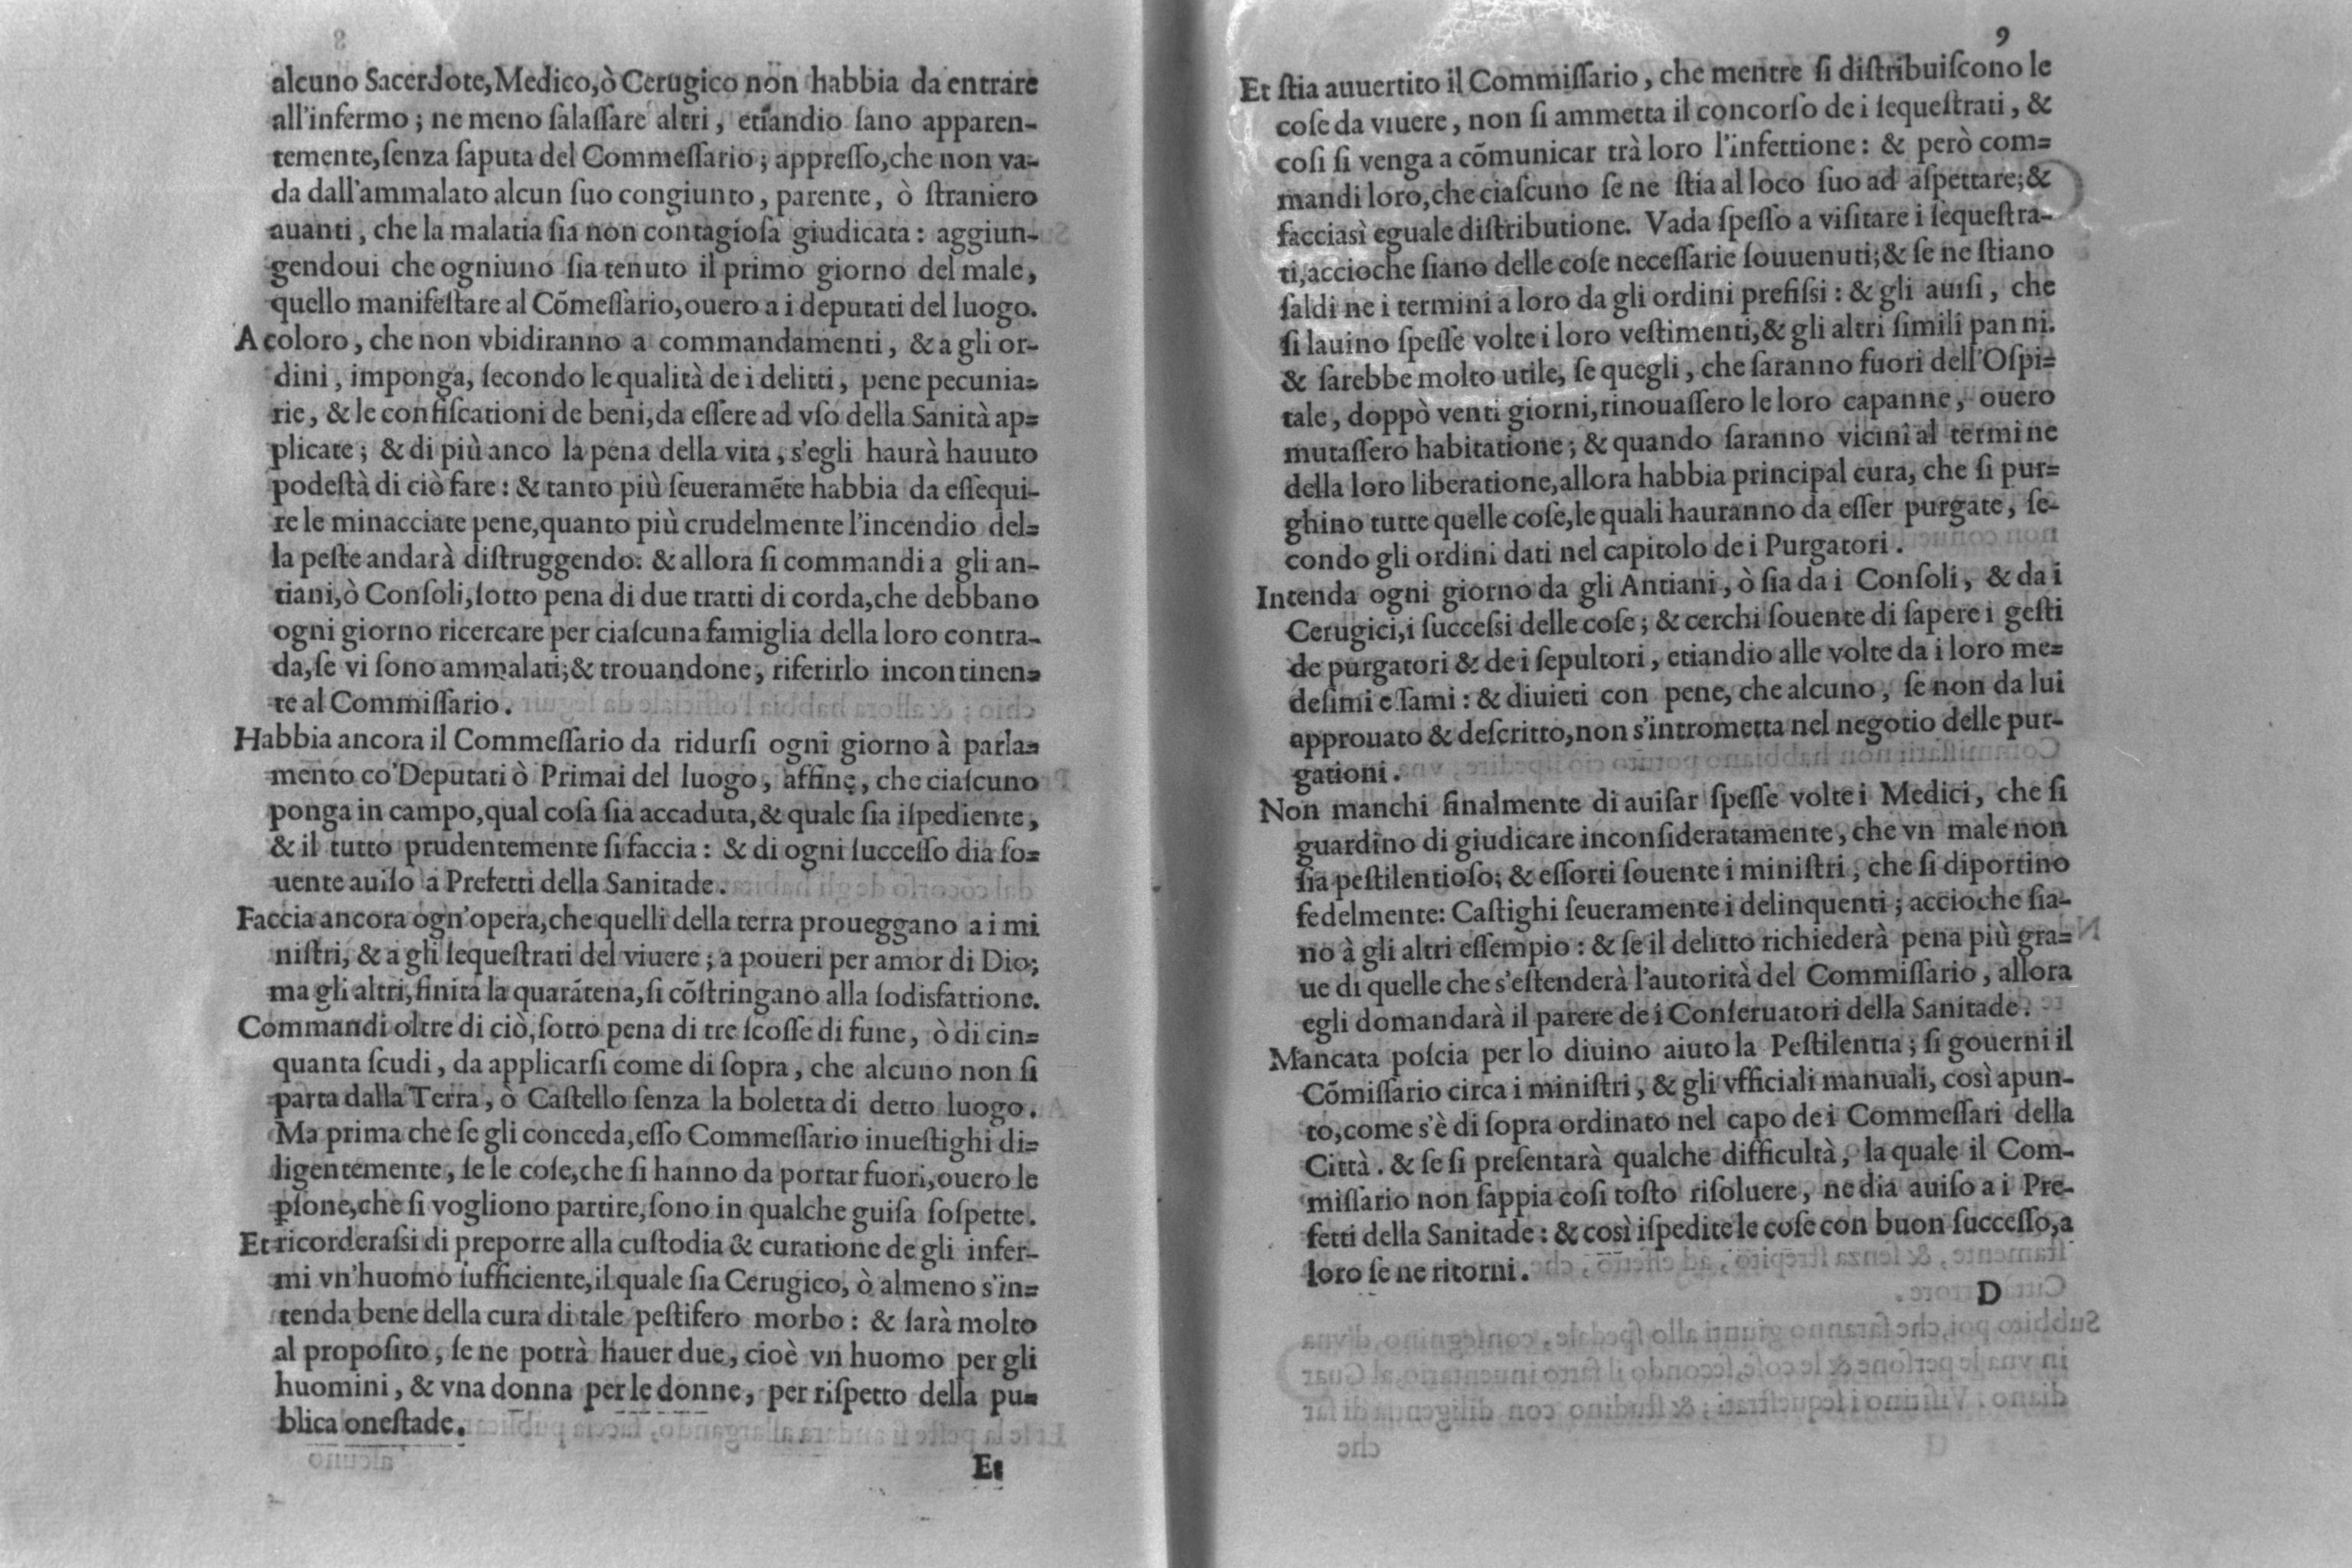 alcuno Sacerdote, Medico, ò Cerugico non habbia da entrare
all'infermo; ne meno ſalaſſare altri, etiandio ſano apparen-
temente, ſenza ſaputa del Commeſſario; appreſſo, che non va-
da dall'ammalato alcun ſuo congiunto, parente, ò ſtraniero
auanti, che la malatia ſia non contagioſa giudicata: aggiun-
gendoui che ogniuno ſia tenuto il primo giorno del male,
quello manifeſtare al Cõmeſſario, ouero a i deputati del luogo.
A coloro, che non vbidiranno a commandamenti, & a gli or-
dini, imponga, ſecondo le qualità de i delitti, pene pecunia=
rie, & le confiſcationi de beni, da eſſere ad vſo della Sanità ap=
plicate; & di più anco la pena della vita, s'egli haurà hauuto
podeſtà di ciò fare: & tanto più ſeueramẽte habbia da eſſequi-
re le minacciate pene, quanto più crudelmente l'incendio del=
la peſte andarà diſtruggendo: & allora ſi commandi a gli an-
tiani, ò Conſoli, ſotto pena di due tratti di corda, che debbano
ogni giorno ricercare per ciaſcuna famiglia della loro contra-
da, ſe vi ſono ammalati; & trouandone, riferirlo incontinen=
te al Commiſſario.
Habbia ancora il Commeſſario da ridurſi ogni giorno à parla=
mento co'Deputati ò Primai del luogo, affine, che ciaſcuno
ponga in campo, qual coſa ſia accaduta, & quale ſia iſpediente,
& il tutto prudentemente ſi faccia: & di ogni ſucceſſo dia ſo=
uente auiſo a Prefetti della Sanitade.
Faccia ancora ogn'opera, che quelli della terra proueggano a i mi
niſtri, & a gli ſequeſtrati del viuere; a poueri per amor di Dio;
ma gli altri, finita la quarátena, ſi cõſtringano alla ſodisfattione.
Commandi oltre di ciò, ſotto pena di tre ſcoſſe di fune, ò di cin=
quanta ſcudi, da applicarſi come di ſopra, che alcuno non ſi
parta dalla Terra, ò Caſtello ſenza la boletta di detto luogo.
Ma prima che ſe gli conceda, eſſo Commeſſario inueſtighi di=
ligentemente, ſe le coſe, che ſi hanno da portar fuori, ouero le
pſone, che ſi vogliono partire, ſono in qualche guiſa ſoſpette.
Et ricorderaſsi di preporre alla cuſtodia & curatione de gli infer-
mi vn'huomo ſufficiente, il quale ſia Cerugico, ò almeno s'in=
tenda bene della cura di tale peſtifero morbo: & ſarà molto
al propoſito, ſe ne potrà hauer due, cioè vn huomo per gli
huomini, & vna donna per le donne, per riſpetto della pu=
blica oneſtade.
Et
9
Et ſtia auuertito il Commiſſario, che mentre ſi diſtribuiſcono le
coſe da viuere, non ſi ammetta il concorſo de i ſequeſtrati, &
coſi ſi venga a cõmunicar trà loro l'infettione: & però com=
mandi loro, che ciaſcuno ſe ne ſtia al loco ſuo ad aſpettare; &
facciasì eguale diſtributione. Vada ſpeſſo a viſitare i ſequeſtra-
ti, accioche ſiano delle coſe neceſſarie ſouuenuti; & ſe ne ſtiano
ſaldi ne i termini a loro da gli ordini prefiſsi: & gli auiſi, che
ſi lauino ſpeſſe volte i loro veſtimenti, & gli altri ſimili panni.
& ſarebbe molto utile, ſe quegli, che ſaranno fuori dell'Oſpi=
tale, doppò venti giorni, rinouaſſero le loro capanne, ouero
mutaſſero habitatione; & quando ſaranno vicini al termine
della loro liberatione, allora habbia principal cura, che ſi pur=
ghino tutte quelle coſe, le quali hauranno da eſſer purgate, ſe-
condo gli ordini dati nel capitolo de i Purgatori.
Intenda ogni giorno da gli Antiani, ò ſia da i Conſoli, & da i
Cerugici, i ſucceſsi delle coſe; & cerchi ſouente di ſapere i geſti
de purgatori & de i ſepultori, etiandio alle volte da i loro me=
deſimi eſſami: & diuieti con pene, che alcuno, ſe non da lui
approuato & deſcritto, non s'intrometta nel negotio delle pur-
gationi.
Non manchi finalmente di auiſar ſpeſſe volte i Medici, che ſi
guardino di giudicare inconſideratamente, che vn male non
ſia peſtilentioſo; & eſſorti ſouente i miniſtri, che ſi diportino
fedelmente: Caſtighi ſeueramente i delinquenti; accioche ſia-
no à gli altri eſſempio: & ſe il delitto richiederà pena più gra=
ue di quelle che s'eſtenderà l'autorità del Commiſſario, allora
egli domandarà il parere de i Conſeruatori della Sanitade.
Mancata poſcia per lo diuino aiuto la Peſtilentia; ſi gouerni il
Cõmiſſario circa i miniſtri, & gli vfficiali manuali, così apun-
to, come s'è di ſopra ordinato nel capo de i Commeſſari della
Città. & ſe ſi preſentarà qualche difficultà, la quale il Com-
miſſario non ſappia coſi toſto riſoluere, ne dia auiſo a i Pre-
fetti della Sanitade: & così iſpedite le coſe con buon ſucceſſo, a
loro ſe ne ritorni.
D